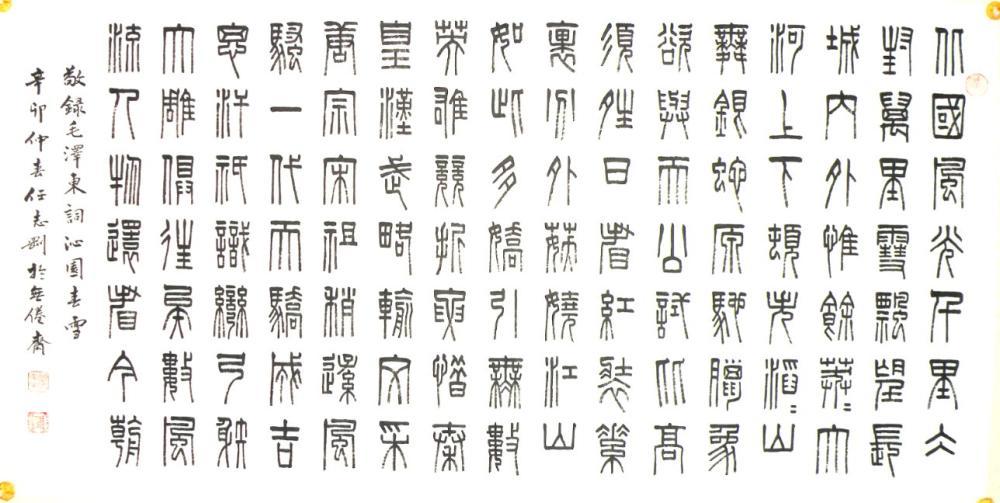 北國風光千里冰
封萬里雪飄望長
城內外惟餘莽〻大
河上下頓失滔〻山
舞銀蛇原馳臘象
欲與天公試比高
須晴日看紅裝素
裹分外妖嬈江山
如此多嬌引無數
英雄競折腰惜秦
皇漢武略輸文采
唐宗宋祖稍遜風
騷一代天驕成吉
思汗祇識彎弓射
大雕俱往矣數風
流人物還看今朝
敬録毛澤東詞沁園春雪
辛卯仲春任志剛於無倦齋